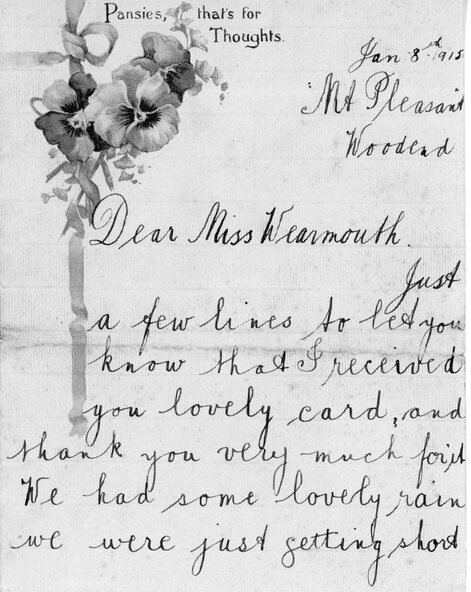 Pansies, that's for
Thoughts.
Jan 8th 1915
"Mt Pleasant"
Woodend
Dear Miss Wearmouth.
Just
a few lines to let you
know that I received
you lovely card, and
thank you very much for it
We had some lovely rain
we were just getting short